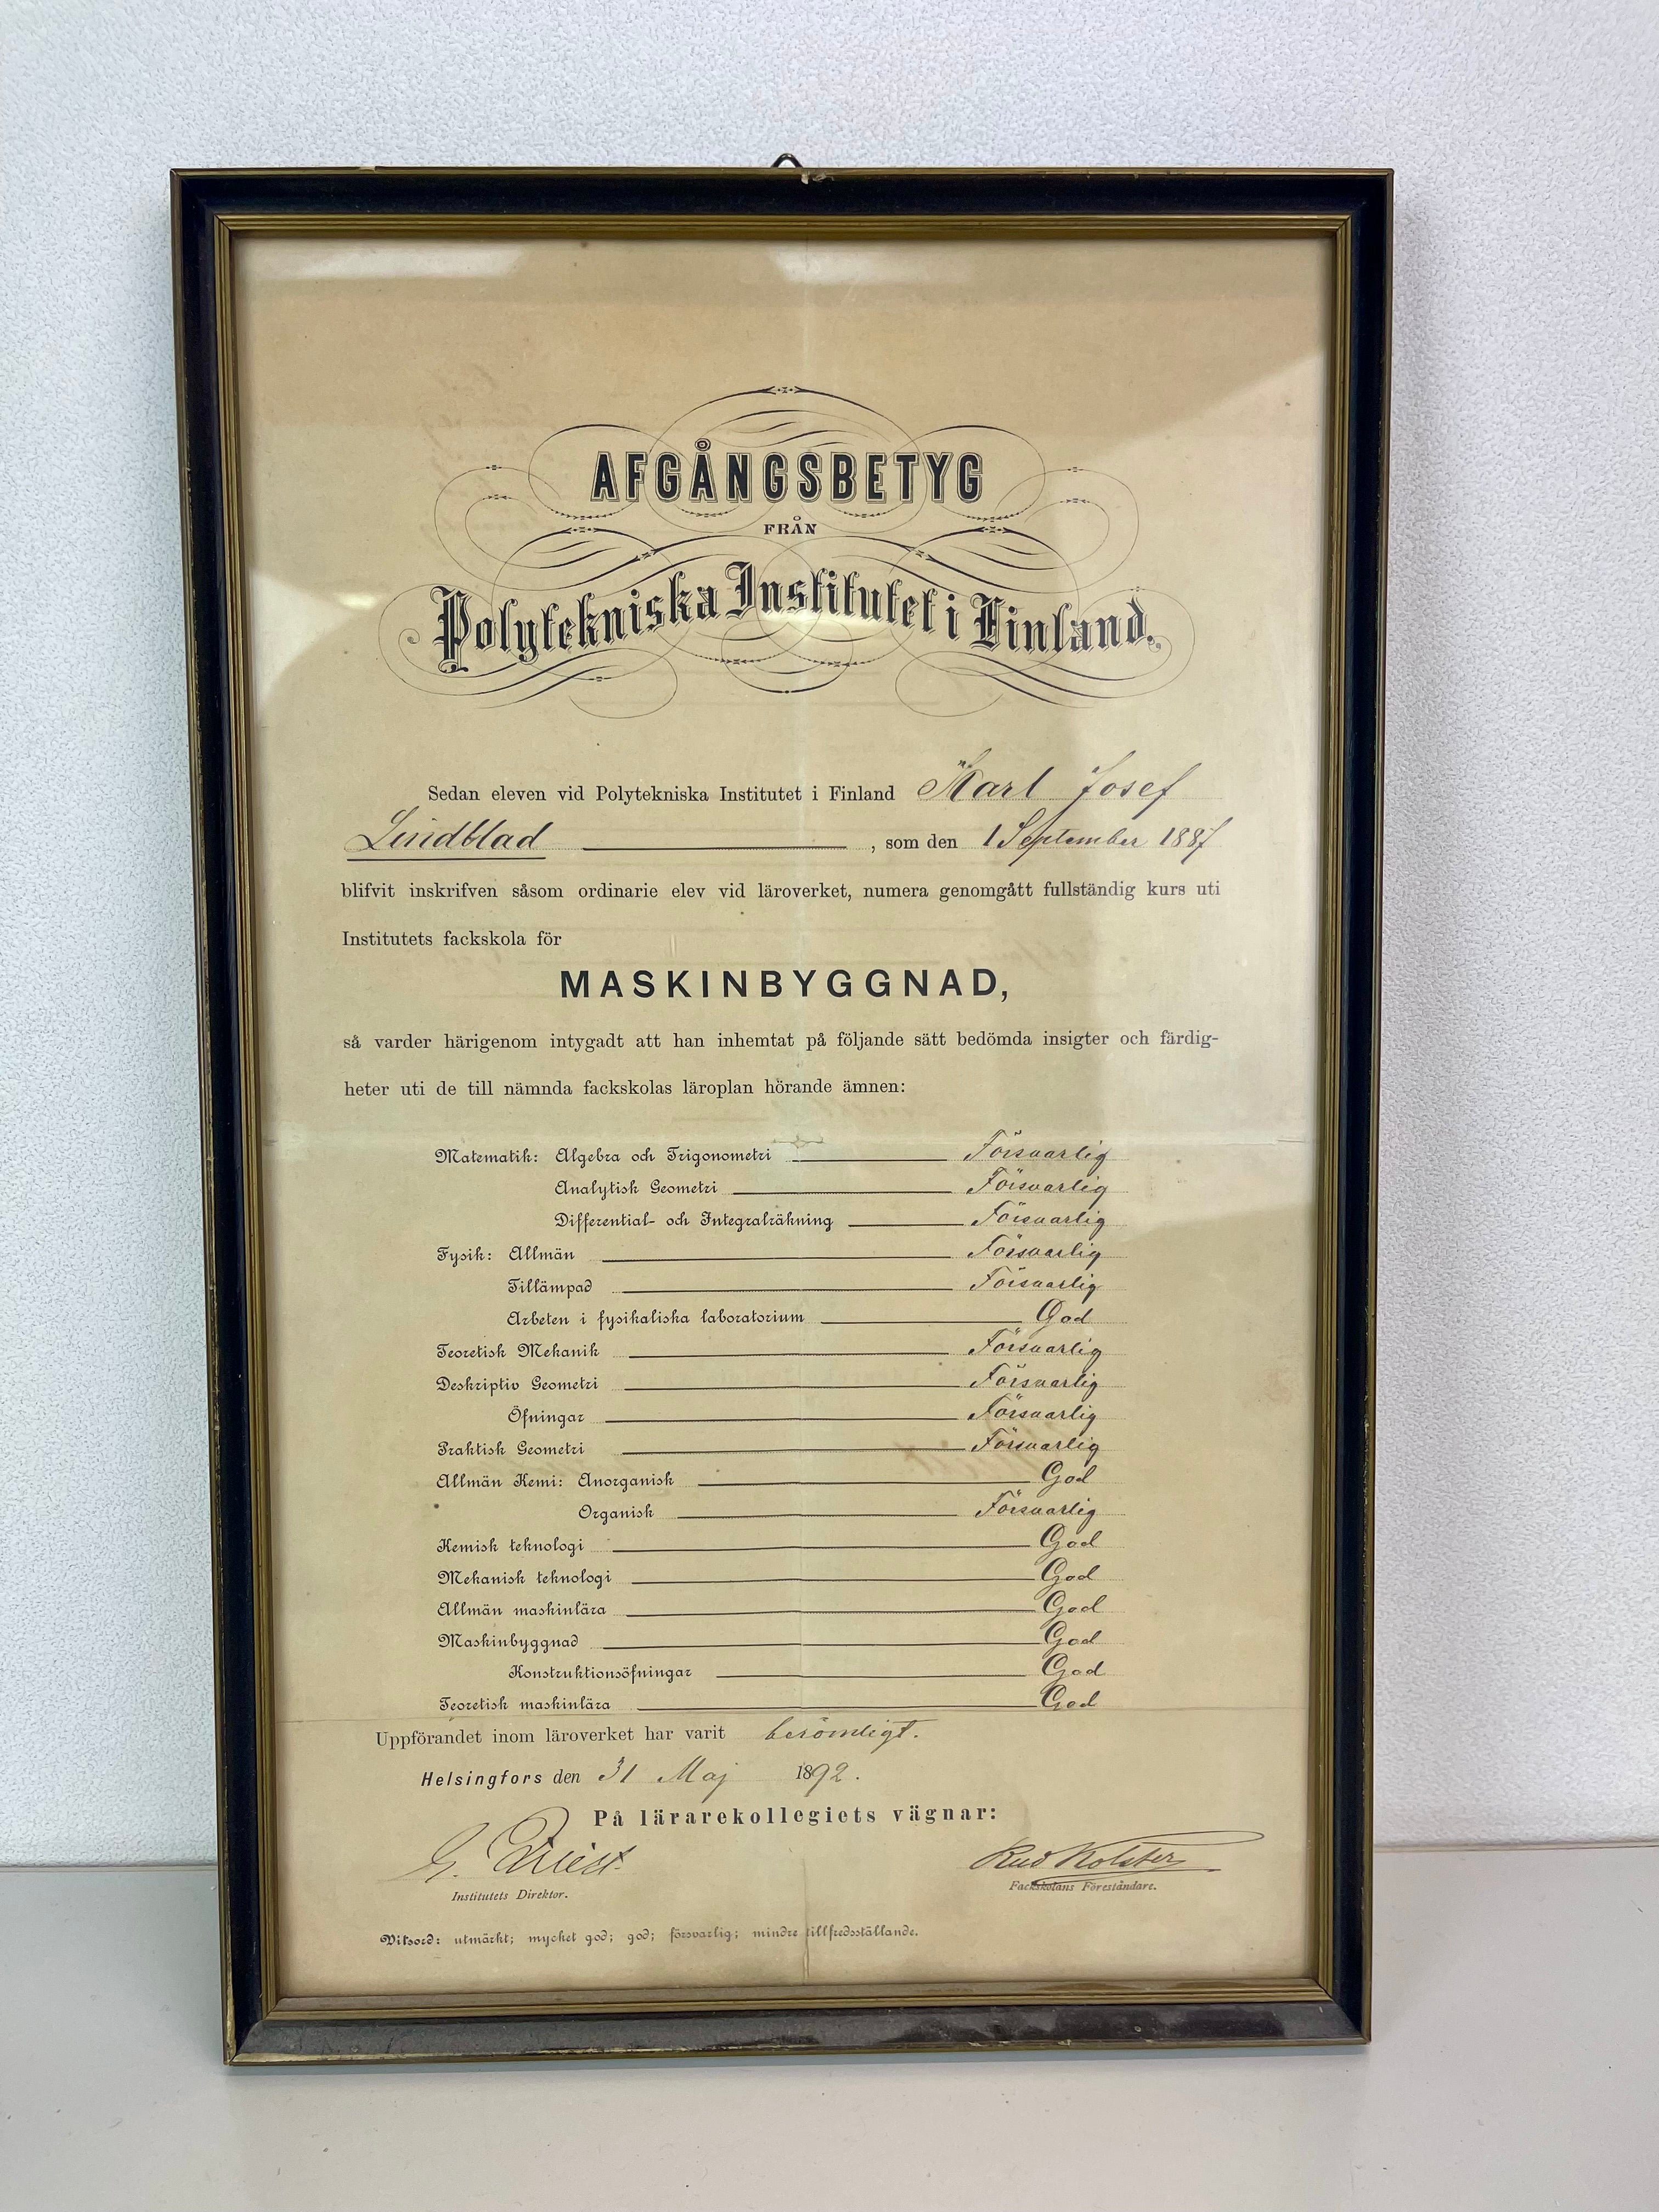 AFGÅNGSBETYG
FRÅN
Polytekniska Institutet i Finland.
Sedan eleven vid Polytekniska Institutet i Finland Karl Josef
Lindblad , som den 1 September 1887
blifvit inskrifven såsom ordinarie elev vid läroverket, numera genomgått fullständig kurs uti
Institutets fackskola för
MASKINBYGGNAD,
så varder härigenom intygadt att han inhemtat på följande sätt bedömda insigter och färdig-
heter uti de till nämnda fackskolas läroplan hörande ämnen:
Matematik: Algebra och Trigonometri Försvarlig
Analytisk Geometri Försvarlig
Differential- och Integralräkning Försvarlig
Fysik: Allmän Försvarlig
Tillämpad Försvarlig
Arbeten i fysikaliska laboratorium God
Teoretisk Mekanik Försvarlig
Deskriptiv Geometri Försvarlig
Öfningar Försvarlig
Praktisk Geometri Försvarlig
Allmän Kemi: Anorganisk God
Organisk Försvarlig
Kemisk teknologi God
Mekanisk teknologi God
Allmän maskinlära God
Maskinbyggnad God
Konstruktionsöfningar God
Teoretisk maskinlära God
Uppförandet inom läroverket har varit berömligt.
Helsingfors den 31 Maj 1892.
På lärarekollegiets vägnar:
Rud Kolster
Institutets Direktor.
Fackskolans Föreståndare.
Vitsord: utmärkt; mycket god; god; försvarlig; mindre tillfredsställande.